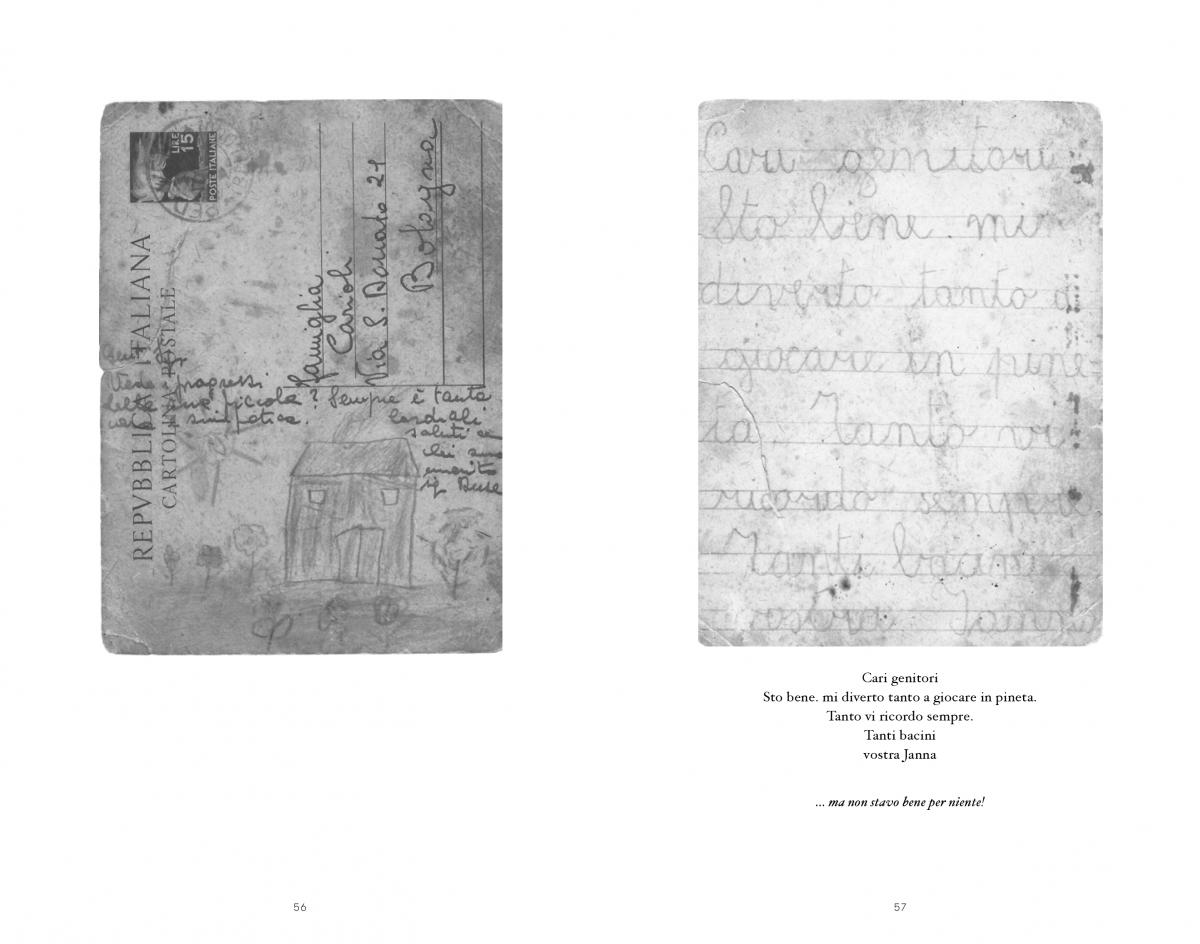 LIRE
15
POSTE ITALIANE
REPVBBLICA ITALIANA
CARTOLINA POSTALE
Famiglia
Carioli
Via S. Donato 21
Bologna
Vede i progressi
della sua piccola? Sempre è tanto
cara e simpatica. Cordiali
saluti
Cari genitori
Sto bene mi
diverto tanto a
giocare in pine-
ta. Tanto vi
ricordo sempre
Tanti bacini
vostra Janna
Cari genitori
Sto bene. mi diverto tanto a giocare in pineta.
Tanto vi ricordo sempre.
Tanti bacini
vostra Janna
... ma non stavo bene per niente!
56
57